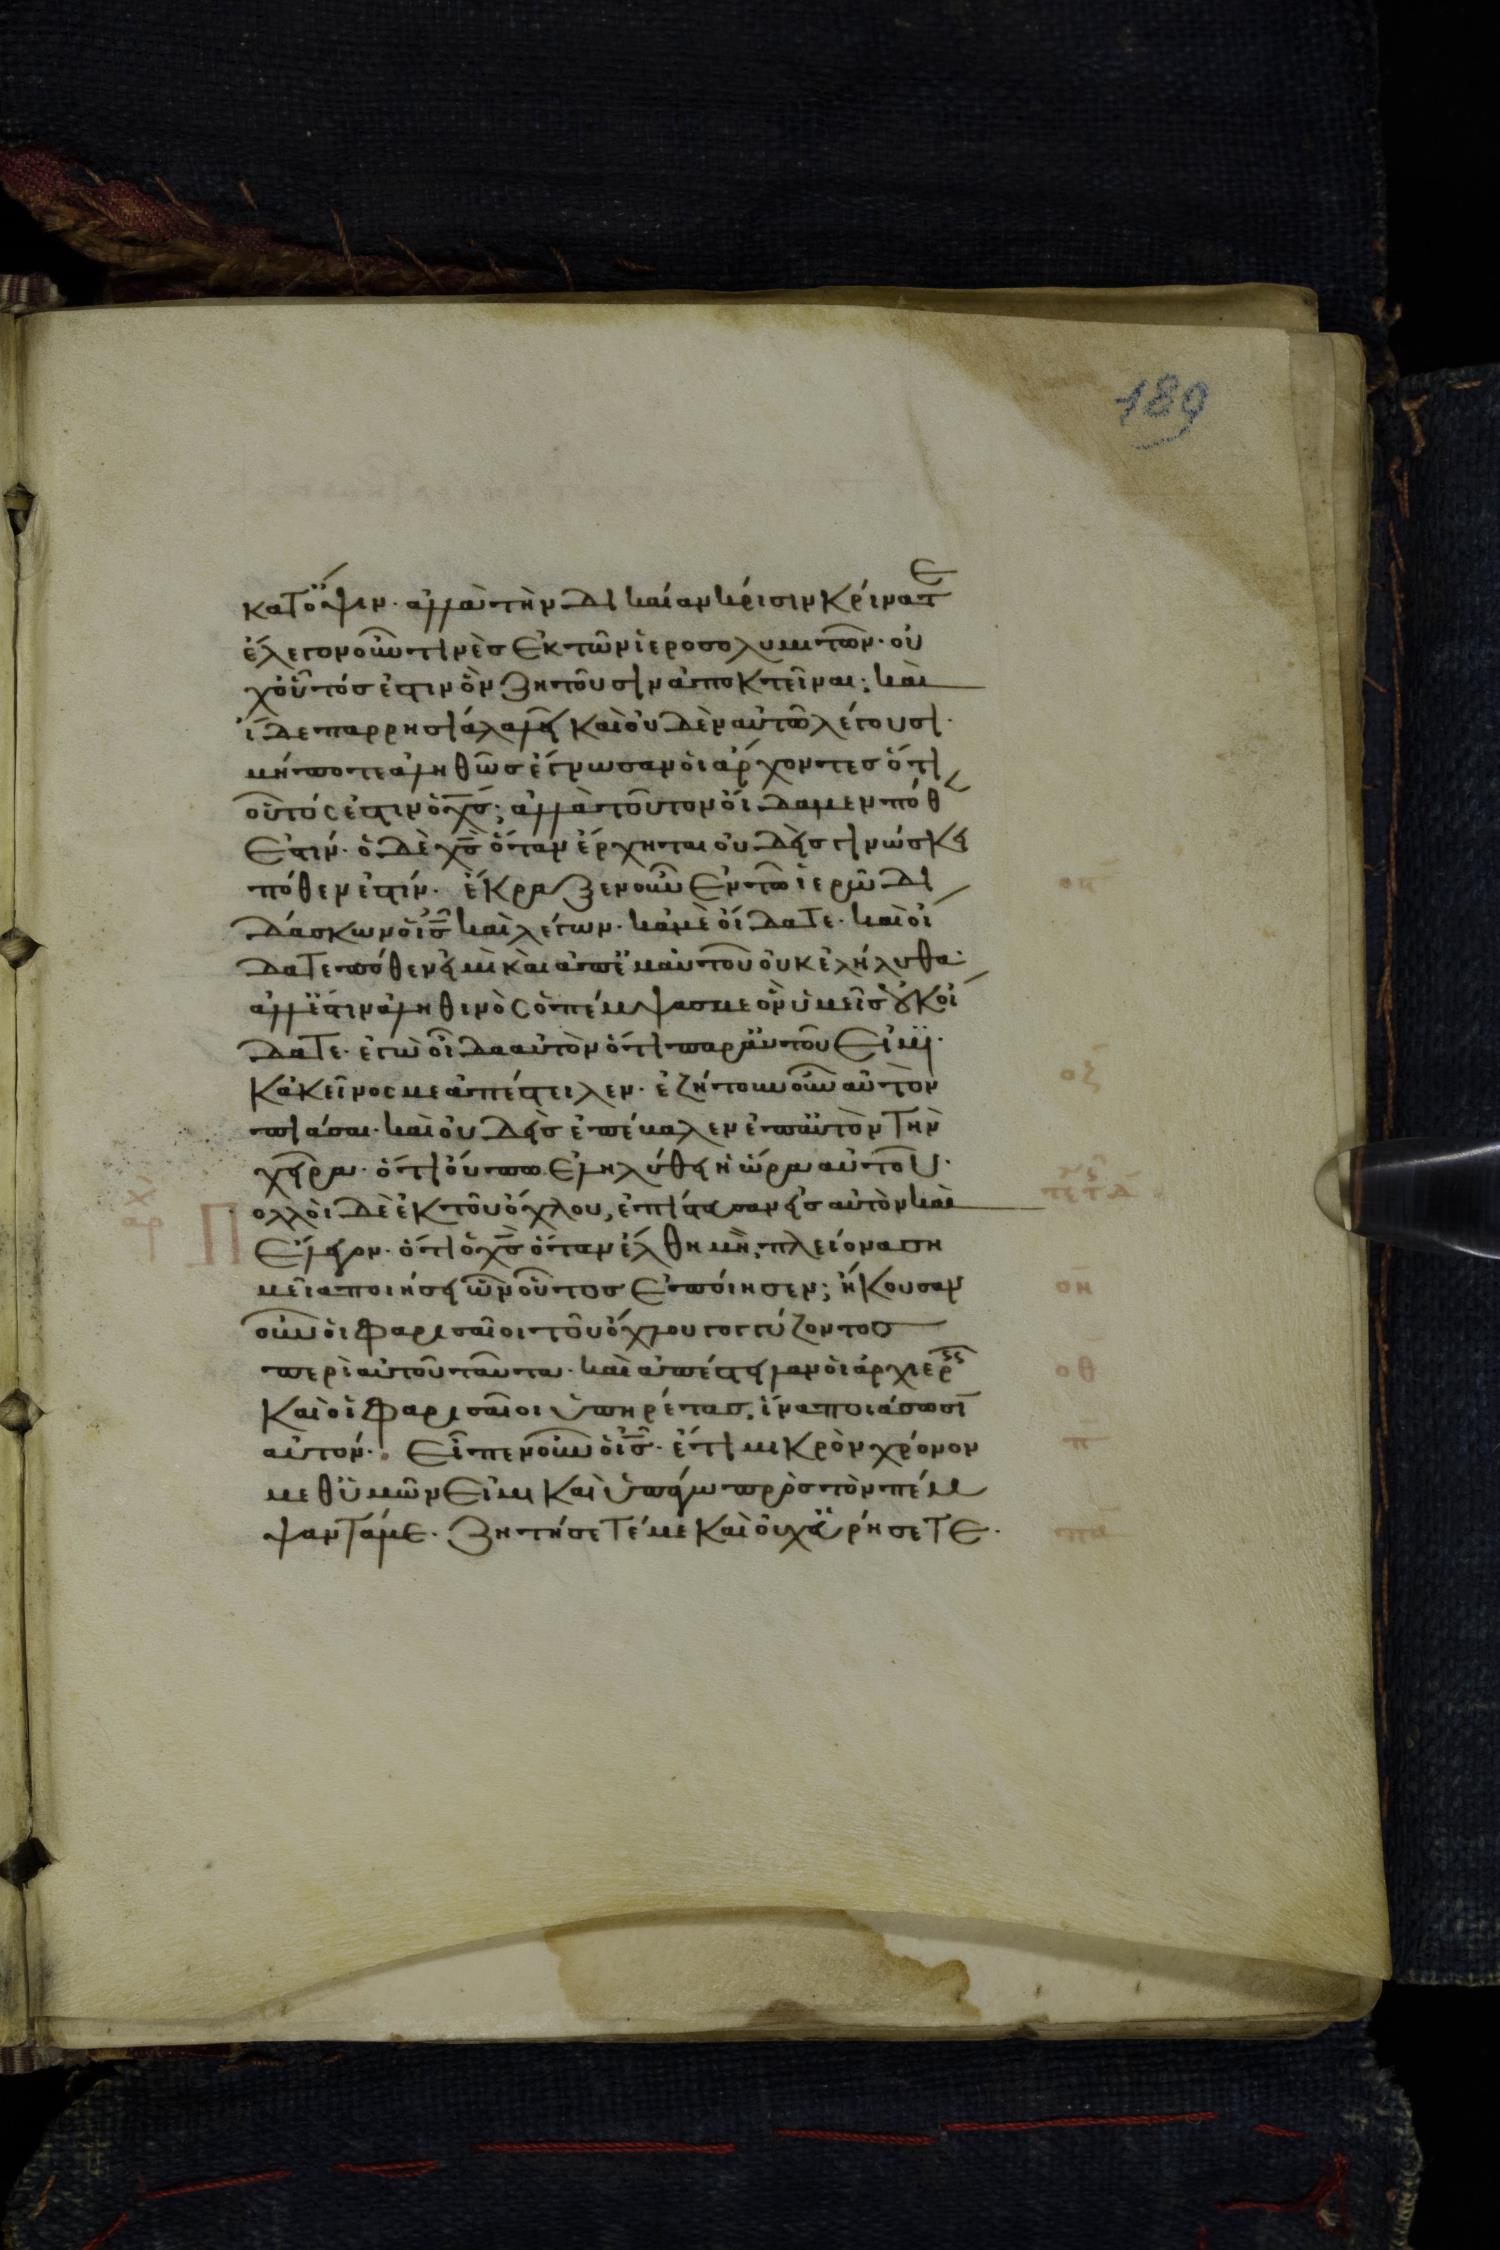 189
κατ ὄψιν· ἀλλὰ τὴν δικαίαν κρίσιν κρίνατε
ἔλεγον οὖν τινὲς ἐκ τῶν ἱεροσολυμιτῶν· οὐ
χ οὗτός ἐστιν ὃν ζητοῦσιν ἀποκτεῖναι; καὶ
ἴδε παρρησία λαλεῖ καὶ οὐδὲν αὐτῶ λέγουσι·
μήποτε ἀληθῶς ἔγνωσαν οἱ ἄρχοντες ὅτι
οὗτός ἐστιν ὁ χς; ἀλλὰ τοῦτον οἴδαμεν πόθ
ἐστίν· ὁ δὲ χς ὅταν ἔρχηται οὐδεὶς γινώσκει
πόθεν ἐστίν· ἔκραζεν οὖν ἐν τῶ ἱερῶ δι
δάσκων ὁ ις καὶ λέγων· κἀμὲ οἴδατε· καὶ οἴ
δατε πόθεν εἰμὶ καὶ ἀπ ἐμαυτοῦ οὐκ ἐλήλυθα·
ἀλλ ἔστιν ἀληθινὸς ὁ πέμψας με ὃν ὑμεῖς οὐκ οἴ
δατε· ἐγὼ οἶδα αὐτὸν ὅτι παρ αὐτοῦ εἰμι·
κἀκεῖνος με ἀπέστειλεν· ἐζήτουν οὖν αὐτὸν
πιάσαι· καὶ οὐδεὶς ἐπέβαλεν ἐπ αὐτὸν τὴν
χεῖρα· ὅτι οὔπω ἐληλύθει ἡ ὥρα αὐτοῦ·
Πολλοὶ δὲ ἐκ τοῦ ὄχλου, ἐπίστευσαν εἰς αὐτὸν καὶ
ἔλεγον· ὅτι ὁ χς ὅταν ἔλθη μὴ πλείονα ση
μεῖα ποιήσει ὧν οὗτος ἐποίησεν; ἤκουσαν
οὖν οἱ φαρισαῖοι τοῦ ὄχλου γογγύζοντος
περὶ αὐτοῦ ταῦτα· καὶ ἀπέστειλαν οἱ ἀρχιερς
καὶ οἱ φαρισαῖοι ὑπηρέτας, ἵνα πιάσωσι
αὐτόν· εἶπεν οὖν ὁ ις· ἔτι μικρὸν χρόνον
μεθ ὑμῶν εἰμι καὶ ὑπάγω πρὸς τὸν πέμ
ψαντά με· ζητήσετέ με καὶ οὐχ εὑρήσετε·
οξ
ση
οθ
π
πα